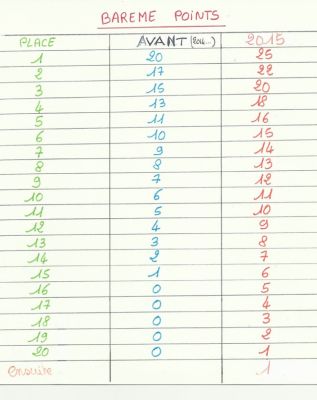 BAREME POINTS
PLACE AVANT (2014...) 2015
1 20 25
2 17 22
3 15 20
4 13 18
5 11 16
6 10 15
7 9 14
8 8 13
9 7 12
10 6 11
11 5 10
12 4 9
13 3 8
14 2 7
15 1 6
16 0 5
17 0 4
18 0 3
19 0 2
20 0 1
ensuite 1